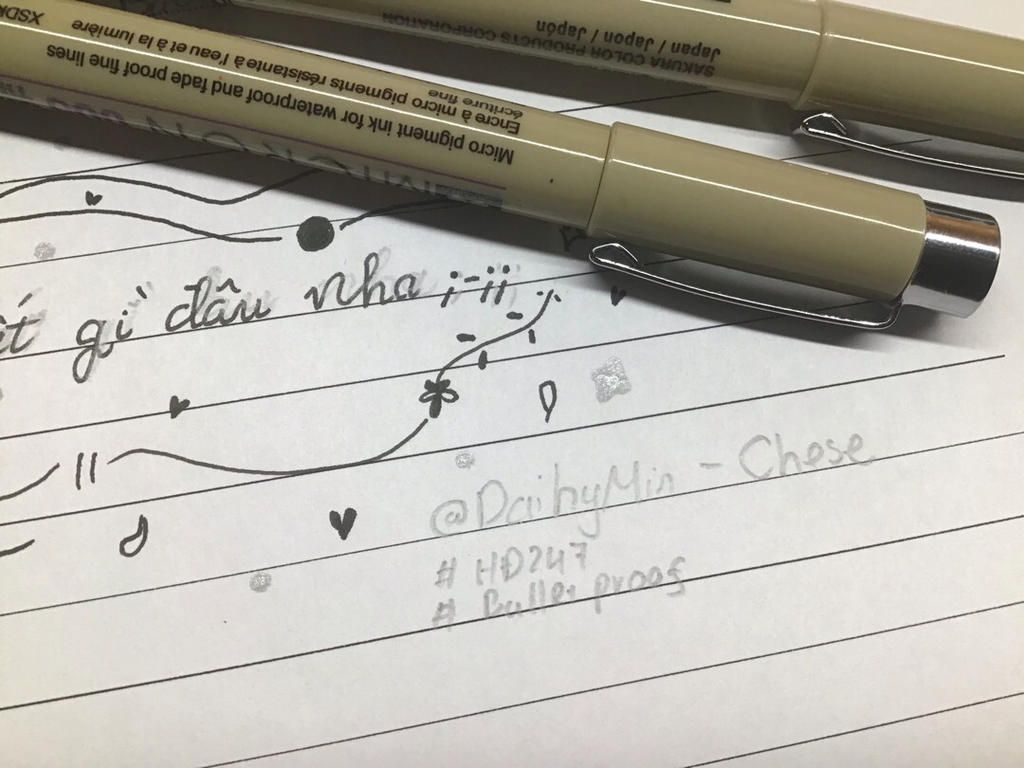 SAKURA COLOR PRODUCTS CORPORATION
Japan / Japon / Japón
XSDK
Micro pigment ink for waterproof and fade proof fine lines
Encre à micro pigments résistante à l'eau et à la lumière
écriture fine
gì đâu nha ;-;;
@DaihyMin - Chose
# HD247
# Bulletproof